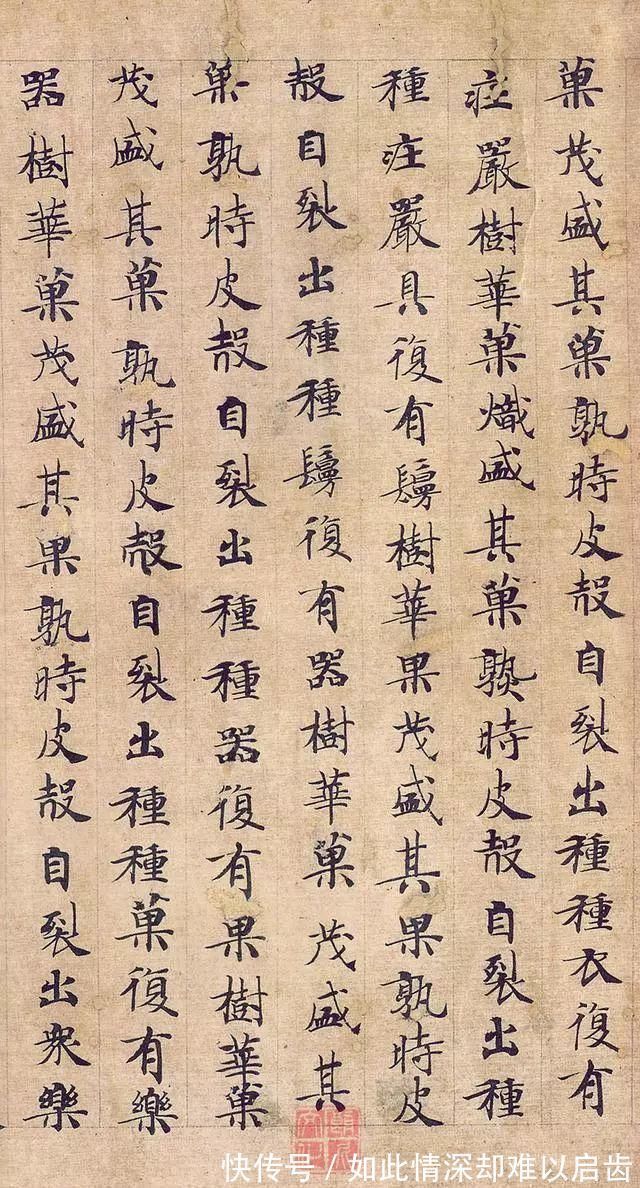 菓茂盛其菓孰時皮殻自裂出種種衣復有
㽵嚴樹華菓熾盛其菓熟時皮殻自裂出種
種㽵嚴具復有鬘樹華果茂盛其果孰時皮
殻自裂出種種鬘復有器樹華菓茂盛其
菓孰時皮殻自裂出種種器復有果樹華菓
茂盛其菓孰時皮殻自裂出種種菓復有樂
器樹華菓茂盛其果孰時皮殻自裂出衆樂
快传号 / 如此情深却难以启齿